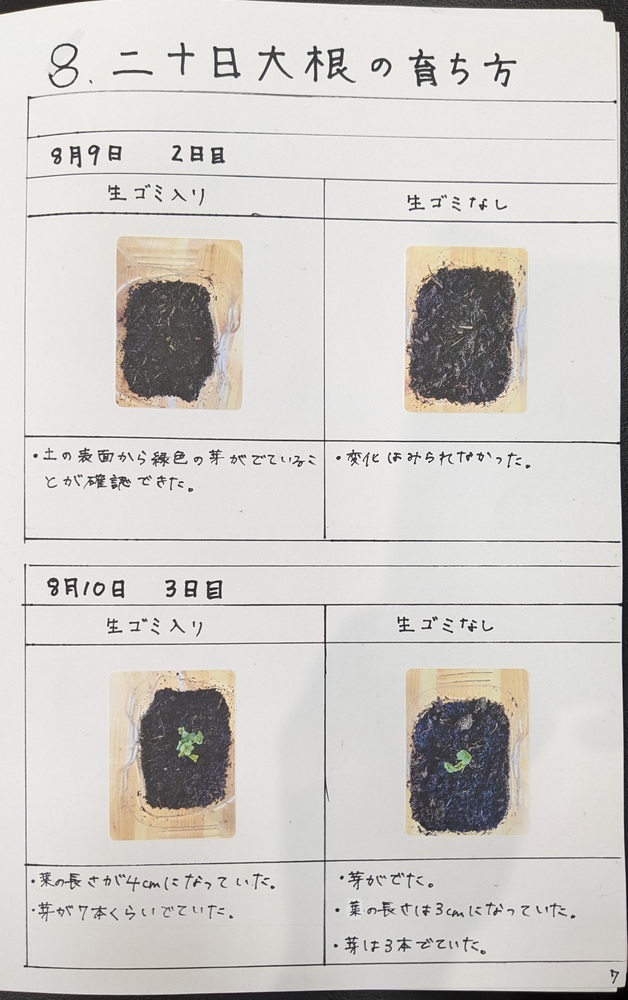 8. 二十日大根の育ち方
8月9日 2日目
生ゴミ入り
生ゴミなし
・土の表面から緑色の芽がでているこ
とが確認できた。
・変化はみられなかった。
8月10日 3日目
生ゴミ入り
生ゴミなし
・葉の長さが4cmになっていた。
・芽が7本くらいでていた。
・芽がでた。
・葉の長さは3cmになっていた。
・芽は3本でていた。
7